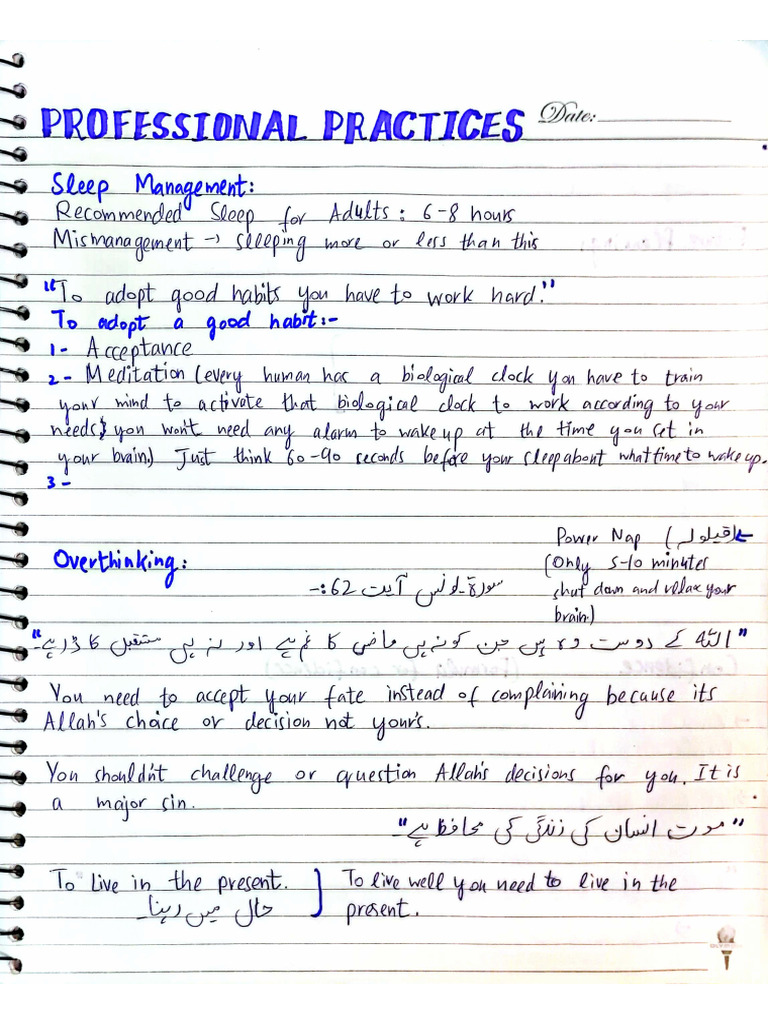 PROFESSIONAL PRACTICES Date:
Sleep Management:
Recommended Sleep for Adults : 6-8 hours
Mismanagement → sleeping more or less than this
"To adopt good habits you have to work hard."
To adopt a good habit:-
1- Acceptance
2- Meditation (every human has a biological clock you have to train
your mind to activate that biological clock to work according to your
needs} you won't need any alarm to wake up at the time you set in
your brain.) Just think 60-90 seconds before your sleep about what time to wake up.
3-
Power Nap (قیلولہ)←
(Only 5-10 minutes
shut down and relax your
brain.)
Overthinking:
سورۃ یونس آیت 62:-
"اللہ کے دوست وہ ہیں جن کو نہ ہی ماضی کا غم ہے اور نہ ہی مستقبل کا ڈر ہے۔"
You need to accept your fate instead of complaining because its
Allah's choice or decision not your's.
You shouldn't challenge or question Allah's decisions for you. It is
a major sin.
"موت انسان کی زندگی کی محافظ ہے۔"
To Live in the present.
حال میں رہنا۔
To live well you need to live in the
present.